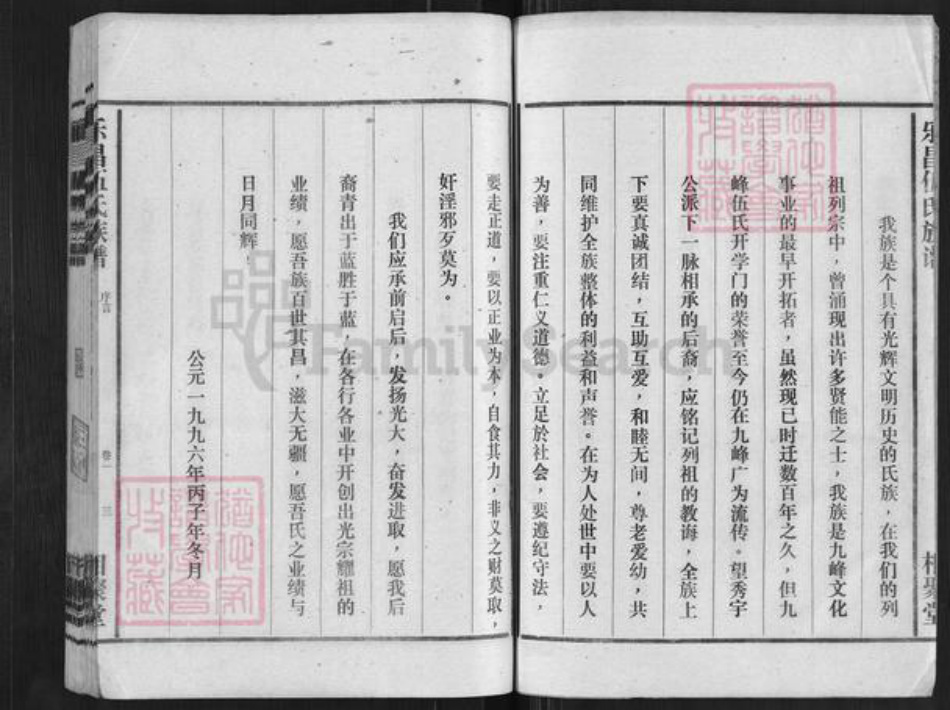 乐昌伍氏族谱
相聚堂
我族是个具有光辉文明历史的氏族，在我们的列
祖列宗中，曾涌现出许多贤能之士，我族是九峰文化
事业的最早开拓者，虽然现已时迁数百年之久，但九
峰伍氏开学门的荣誉至今仍在九峰广为流传。望秀宇
公派下一脉相承的后裔，应铭记列祖的教诲，全族上
下要真诚团结，互助互爱，和睦无间，尊老爱幼，共
同维护全族整体的利益和声誉。在为人处世中要以人
为善，要注重仁义道德。立足於社会，要遵纪守法，
要走正道，要以正业为本，自食其力，非义之财莫取，
奸淫邪歹莫为。
我们应承前启后，发扬光大，奋发进取，愿我后
裔青出于蓝胜于蓝，在各行各业中开创出光宗耀祖的
业绩，愿吾族百世其昌，滋大无疆，愿吾氏之业绩与
日月同辉！
公元一九九六年丙子年冬月
乐昌伍氏族谱
序言
卷一
三
相聚堂
FamilySearch